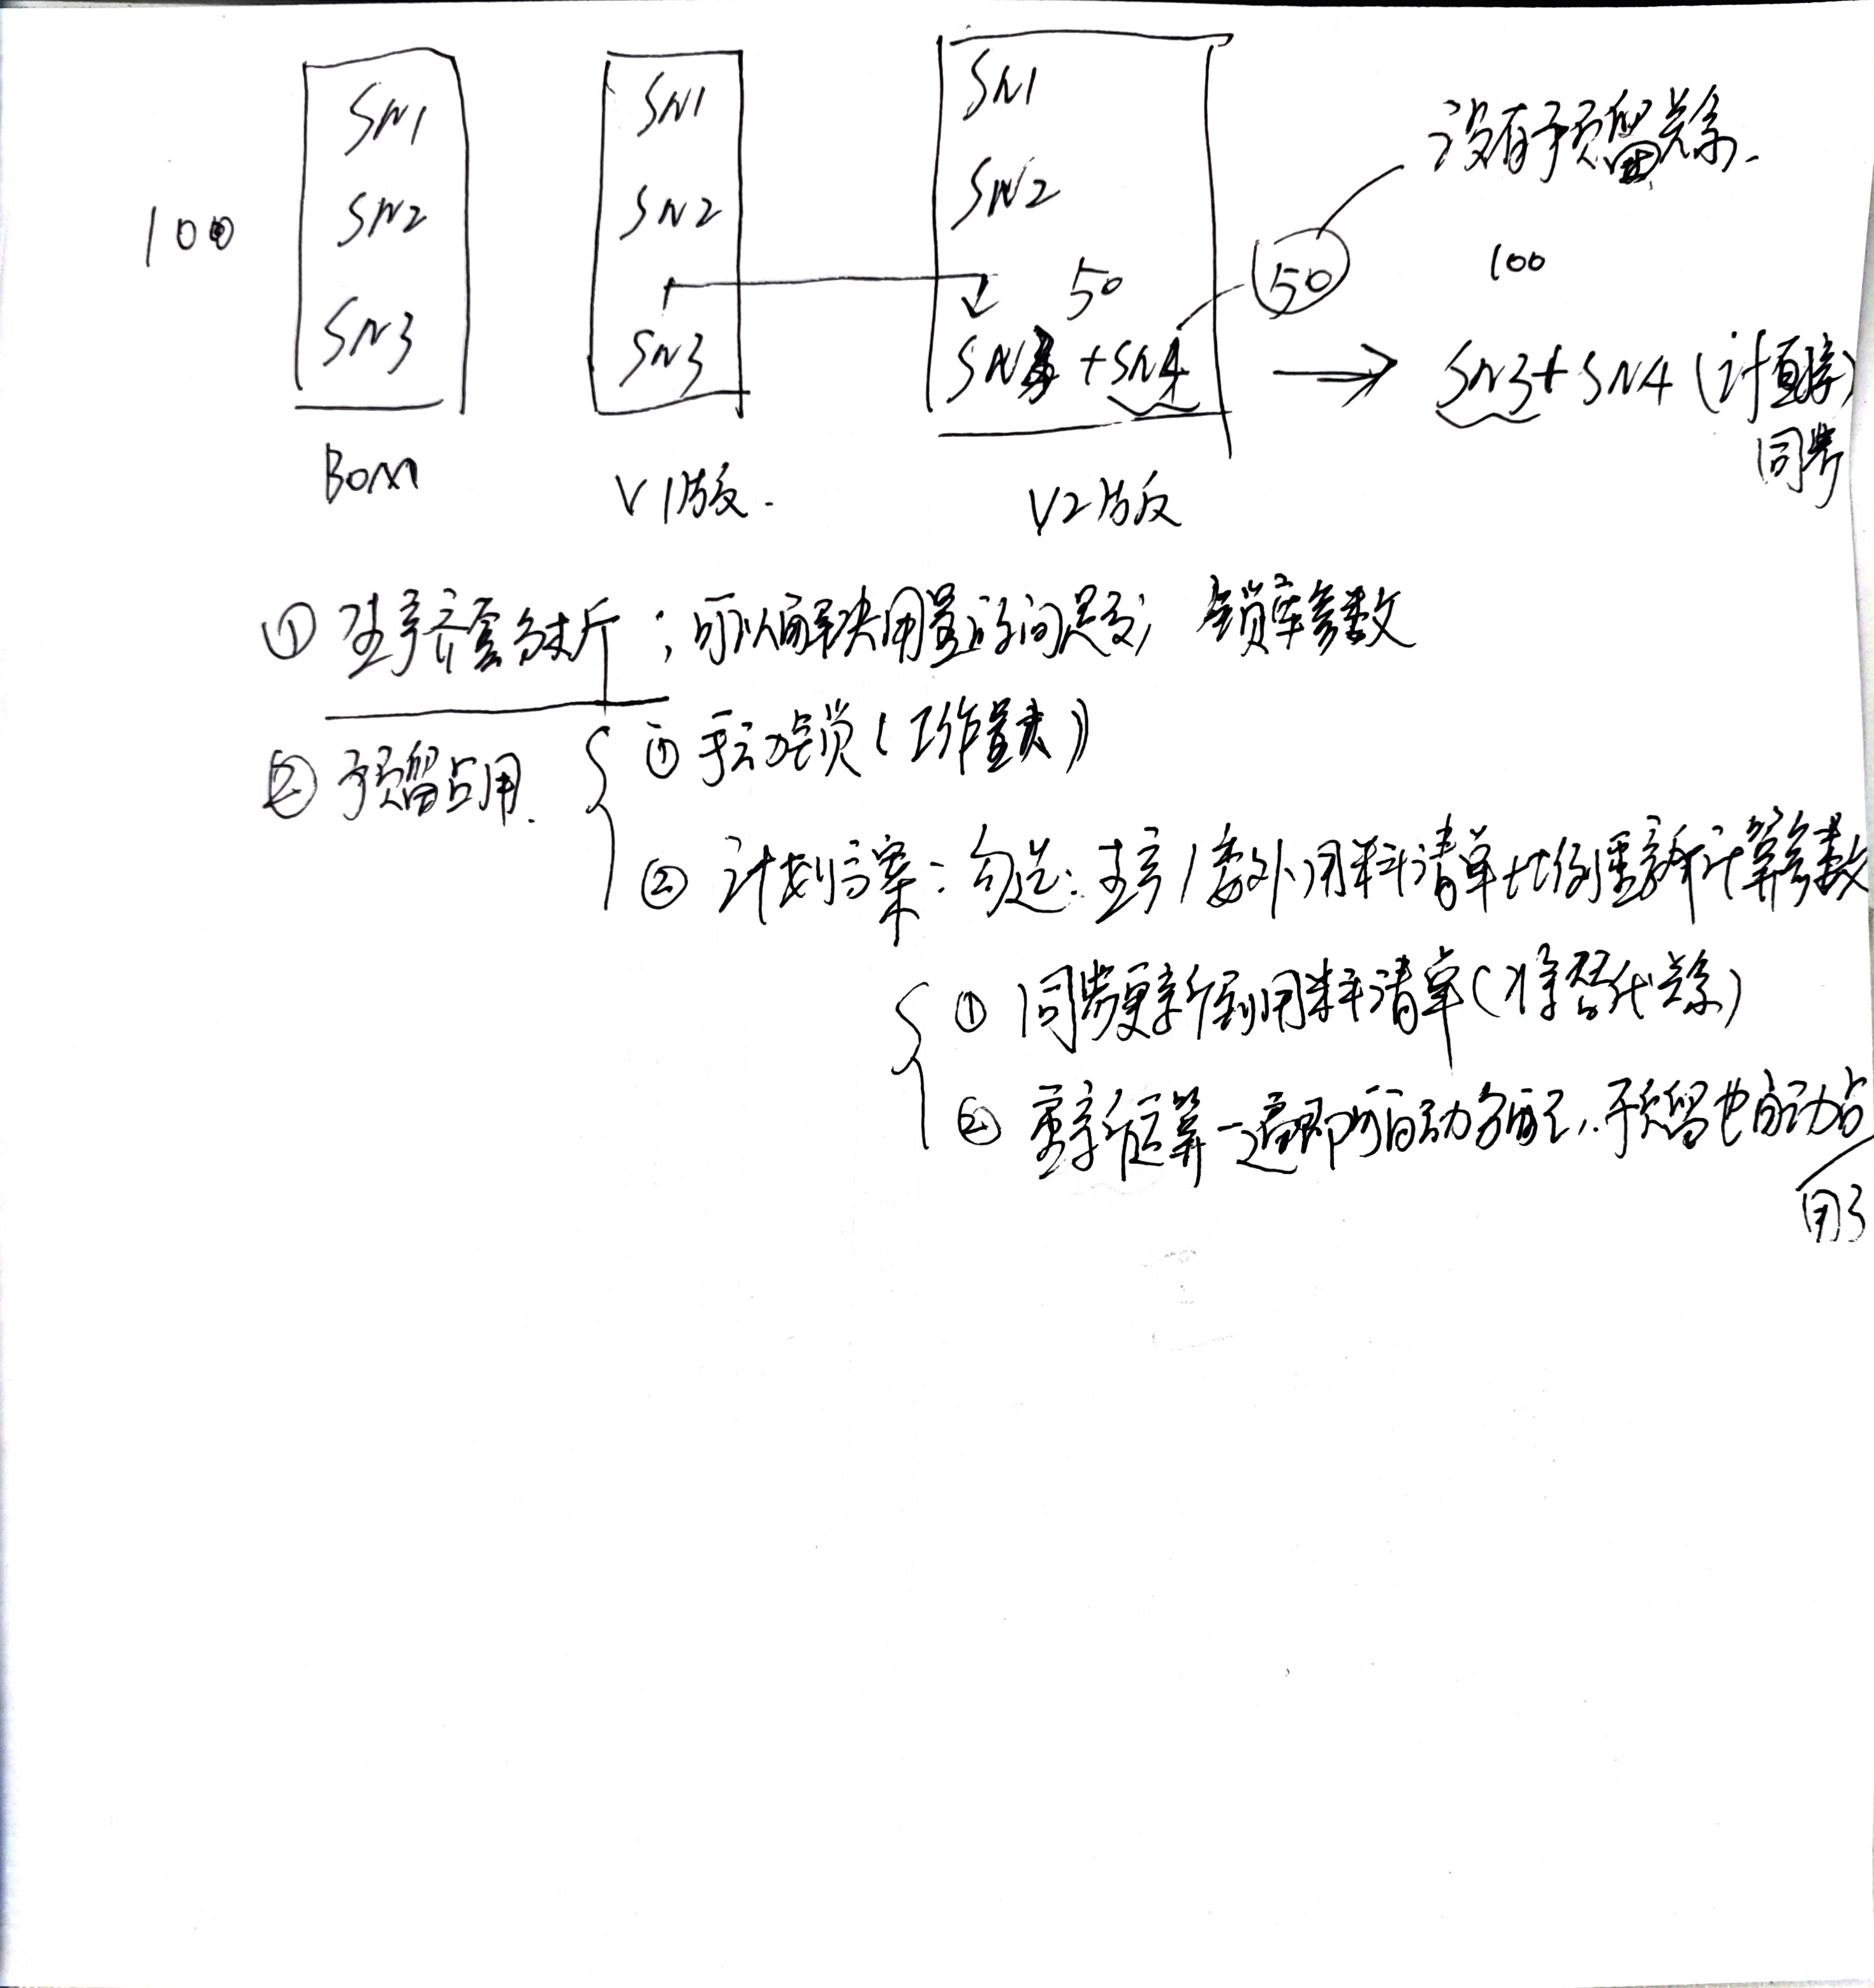 SN1
SN2
SN3
100
BOM
SN1
SN2
SN3
V1版
SN1
SN2
50
SN3 + SN4
V2版
50
没有预留关系
100
SN3+SN4 (计
同步
① 生产齐套分析;可以解决用量的问题; 锁库参数
② 预留占用.
① 手动锁(工作量大)
② 计划方案:勾选:生产/委外用料清单比例重新计算参数
① 同步更新到用料清单(将替代关系)
② 重新运算一遍即可自动分配了,预留也自动占
用了